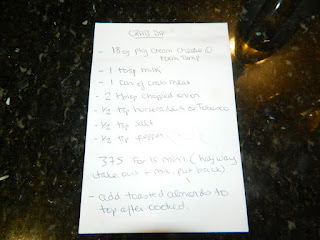 Crab Dip
- 1 8oz pkg Cream Cheese @
Room Temp
- 1 Tbsp milk
- 1 Can of crab meat
- 2 Tblsp chopped onion
- 1/2 tsp horseradish or Tobasco
- 1/2 tsp salt
- 1/2 tsp pepper
375 For 15 min (halfway
take out + mix, put back)
- add toasted almonds to
top after cooked.